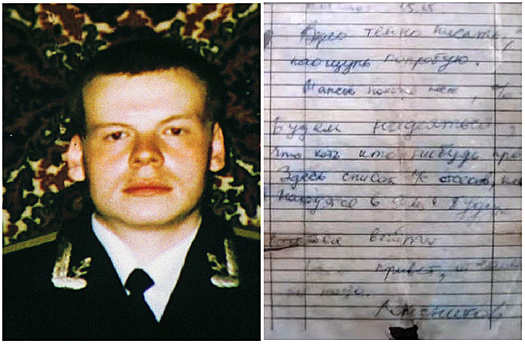 Здесь темно писать,
наощупь попробую.
Шансов похоже нет, %
Будем надеяться,
что хоть кто нибудь про
Здесь список л/с отсеков,
находятся в
выйти
привет,
не надо.
Колесников